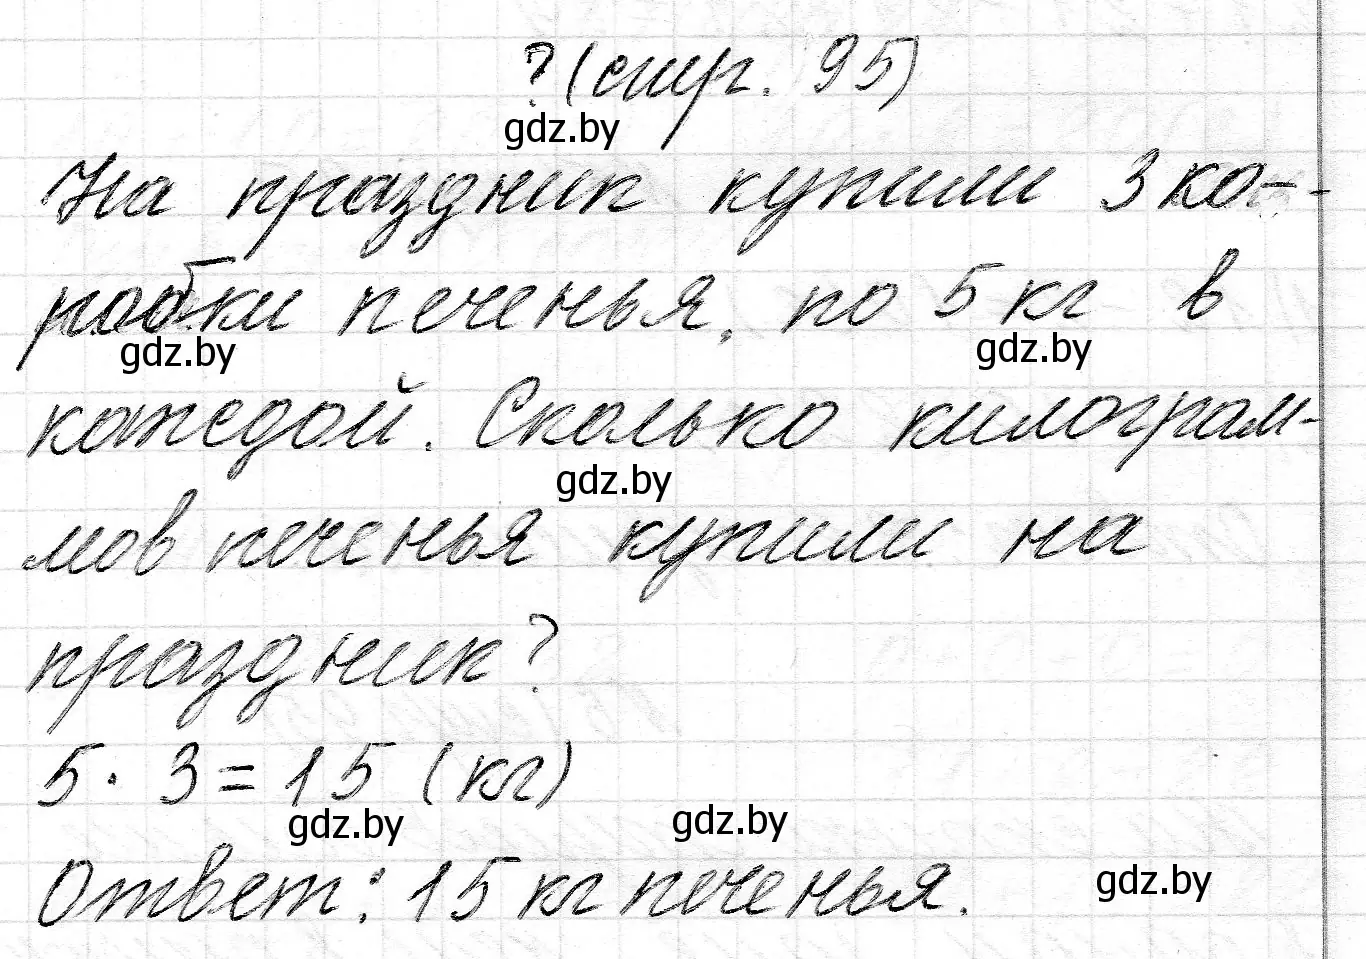 ? (стр. 95)
gdz.by
На праздник купили 3 ко-
робки печенья, по 5 кг в
gdz.by gdz.by
каждой. Сколько килограм-
gdz.by
мов печенья купили на
праздник?
5 · 3 = 15 (кг)
gdz.by gdz.by
Ответ: 15 кг печенья.
gdz.by